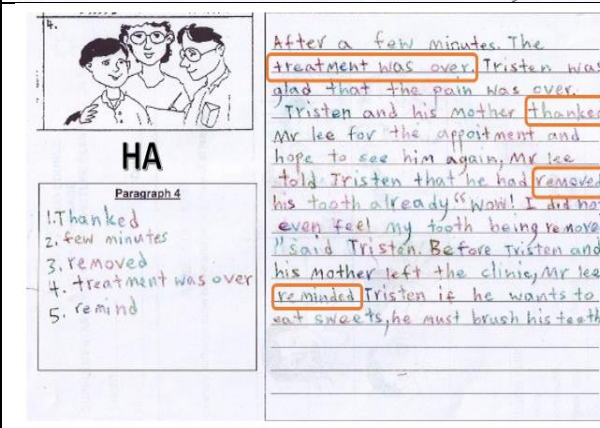 4.
HA
Paragraph 4
1. Thanked
2. few minutes
3. removed
4. treatment was over
5. remind
After a few minutes. The
treatment was over. Tristen was
glad that the pain was over.
Tristen and his Mother thanked
Mr lee for the appoitment and
hope to see him again, Mr lee
told Tristen that he had removed
his tooth already "Wow! I did not
even feel my tooth being remove
"said Tristen. Before Tristen and
his Mother left the clinic, Mr lee
reminded Tristen if he wants to
eat sweets, he must brush his teeth